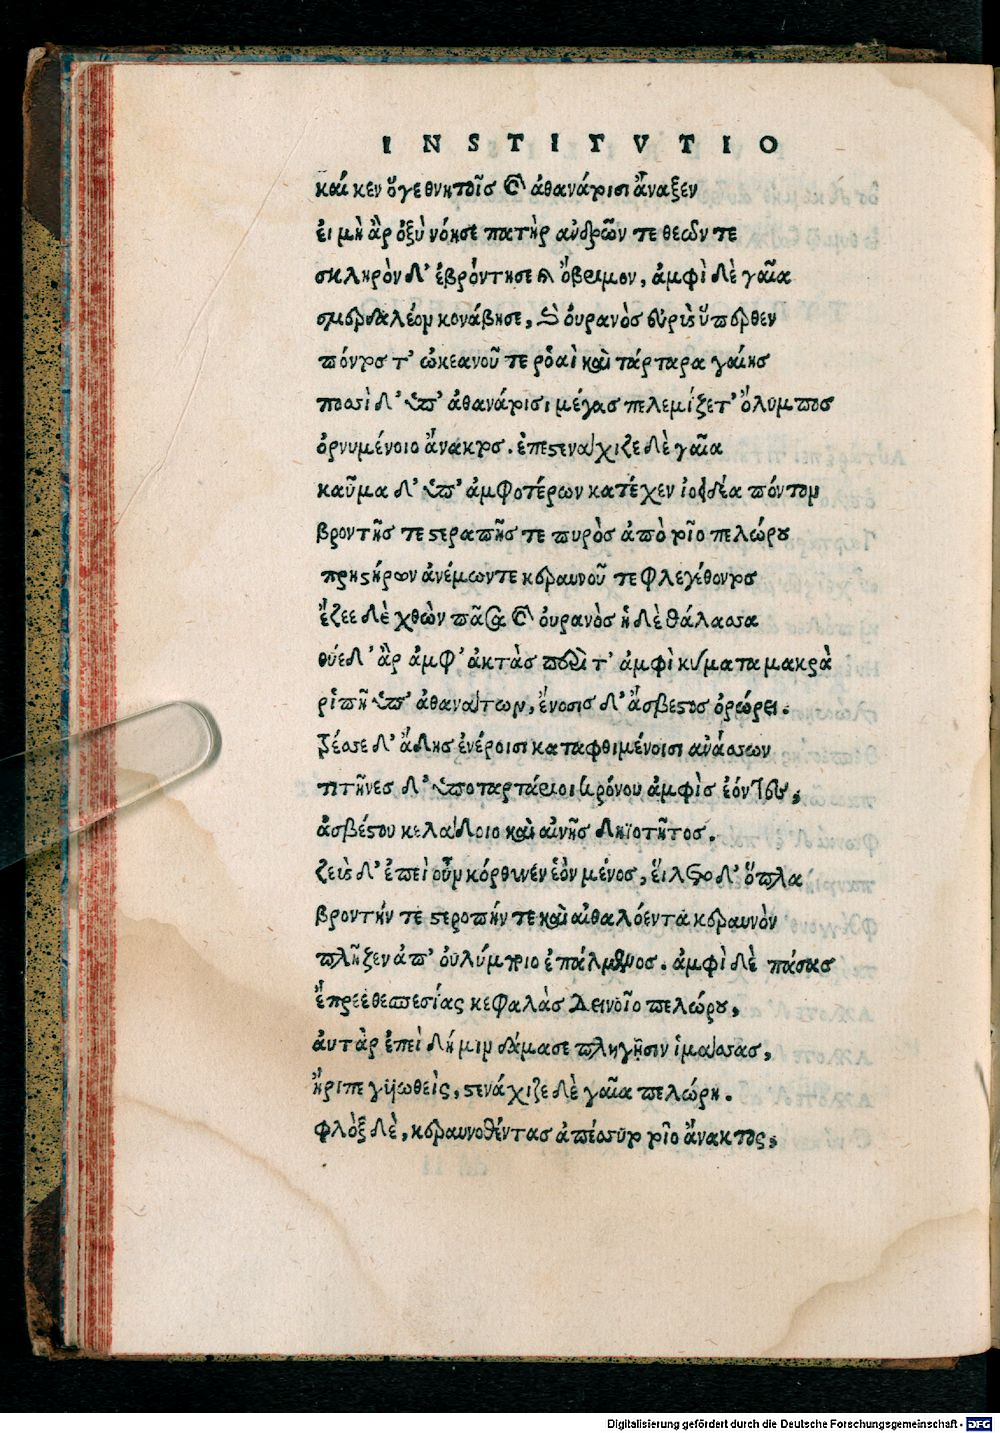 INSTITVTIO
καί κεν ὅγε θνητοῖς καὶ ἀθανάτοισι ἄναξεν
ἐι μὴ ἂρ ὀξὺ νόησε πατὴρ ἀνδρῶν τε θεῶν τε
σκληρὸν δ' ἐβρόντησε καὶ ὄβριμον, ἀμφὶ δὲ γαῖα
σμερδαλέον κονάβησε, καὶ ὀυρανὸς ἐυρὺς ὕπερθεν
πόντος τ' ὠκεανοῦ τε ῥοὰὶ καὶ τάρταρα γαίης
ποσσὶ δ' ὑπ' ἀθανάτοισι μέγας πελεμίζετ' ὄλυμπος
ὀρνυμένοιο ἄνακτος. ἐπεστενάχιζε δὲ γαῖα
καῦμα δ' ὑπ' ἀμφοτέρων κατέχεν ἰοειδέα πόντον
βροντῆς τε στεραπῆς τε πυρὸς ἀπὸ τοῖο πελώρου
πρηστήρων ἀνέμωντε κεραυνοῦ τε φλεγέθοντος
ἔζεε δὲ χθὼν πᾶσα καὶ ὀυρανὸς ἠδὲ θάλασσα
θύε δ' ἂρ ἀμφ' ἀκτὰς περί τ' ἀμφὶ κύματα μακρὰ
ῥιπῇ ὑπ' ἀθανάτων, ἔνοσις δ' ἄσβεστος ὀρώρει.
τρέσσε δ' ἄδης ἐνέροισι καταφθιμένοισι ἀνάσσων
τιτῆνες δ' ὑποταρτάριοι κρόνου ἀμφὶς ἐόντες,
ἀσβέστου κελάδοιο καὶ ἀινῆς δηϊοτῆτος.
ζεὺς δ' ἐπεὶ οὖν κόρθυνεν ἑὸν μένος, εἵλετο δ' ὅπλα
βροντήν τε στεροπήν τε καὶ ἀιθαλόεντα κεραυνὸν
πλῆξεν ἀπ' ὀυλύμποιο ἐπάλμενος. ἀμφὶ δὲ πάσας
ἔπρεε θεσπεσίας κεφαλὰς δεινοῖο πελώρου,
ἀυτὰρ ἐπεὶ δή μιν δάμασε πληγῇσιν ἱμάσσας,
ἤριπε γυιωθεὶς, στενάχιζε δὲ γαῖα πελώρη.
φλὸξ δὲ, κεραυνοθέντας ἀπέσσυτο τοῖο ἄνακτος,
Digitalisierung gefördert durch die Deutsche Forschungsgemeinschaft - DFG